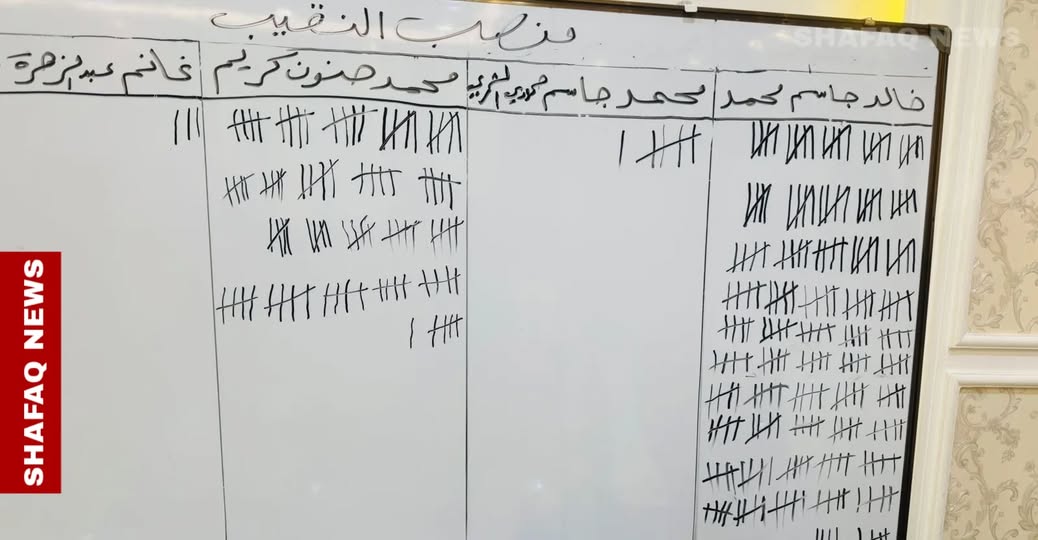 SHAFAQ NEWS
منصب النقيب
خالد جاسم محمد
محمد جاسم حمادي الشمري
محمد حنون كريم
غانم عبد الزهرة
SHAFAQ NEWS